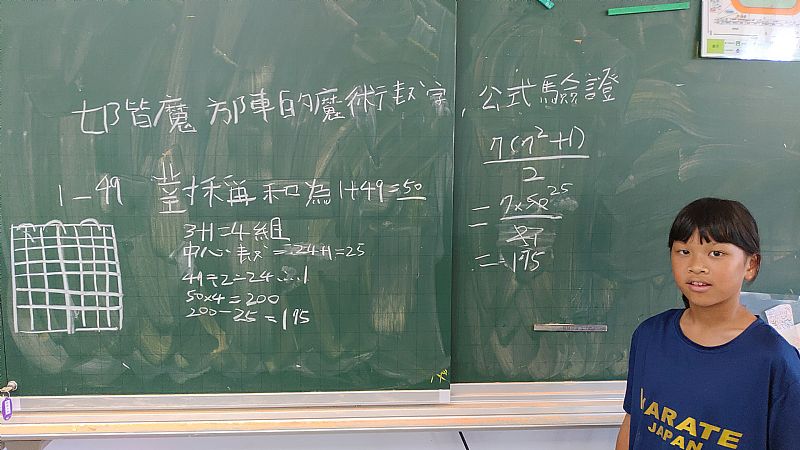 七階魔方陣的魔術數字，公式驗證
1-49 對稱和為1+49=50
3+1=4組
中心數=24+1=25
49÷2=24...1
50×4=200
200-25=175
7(7²+1)
2
=7×50 25
2 1
=175
KARATE
JAPAN